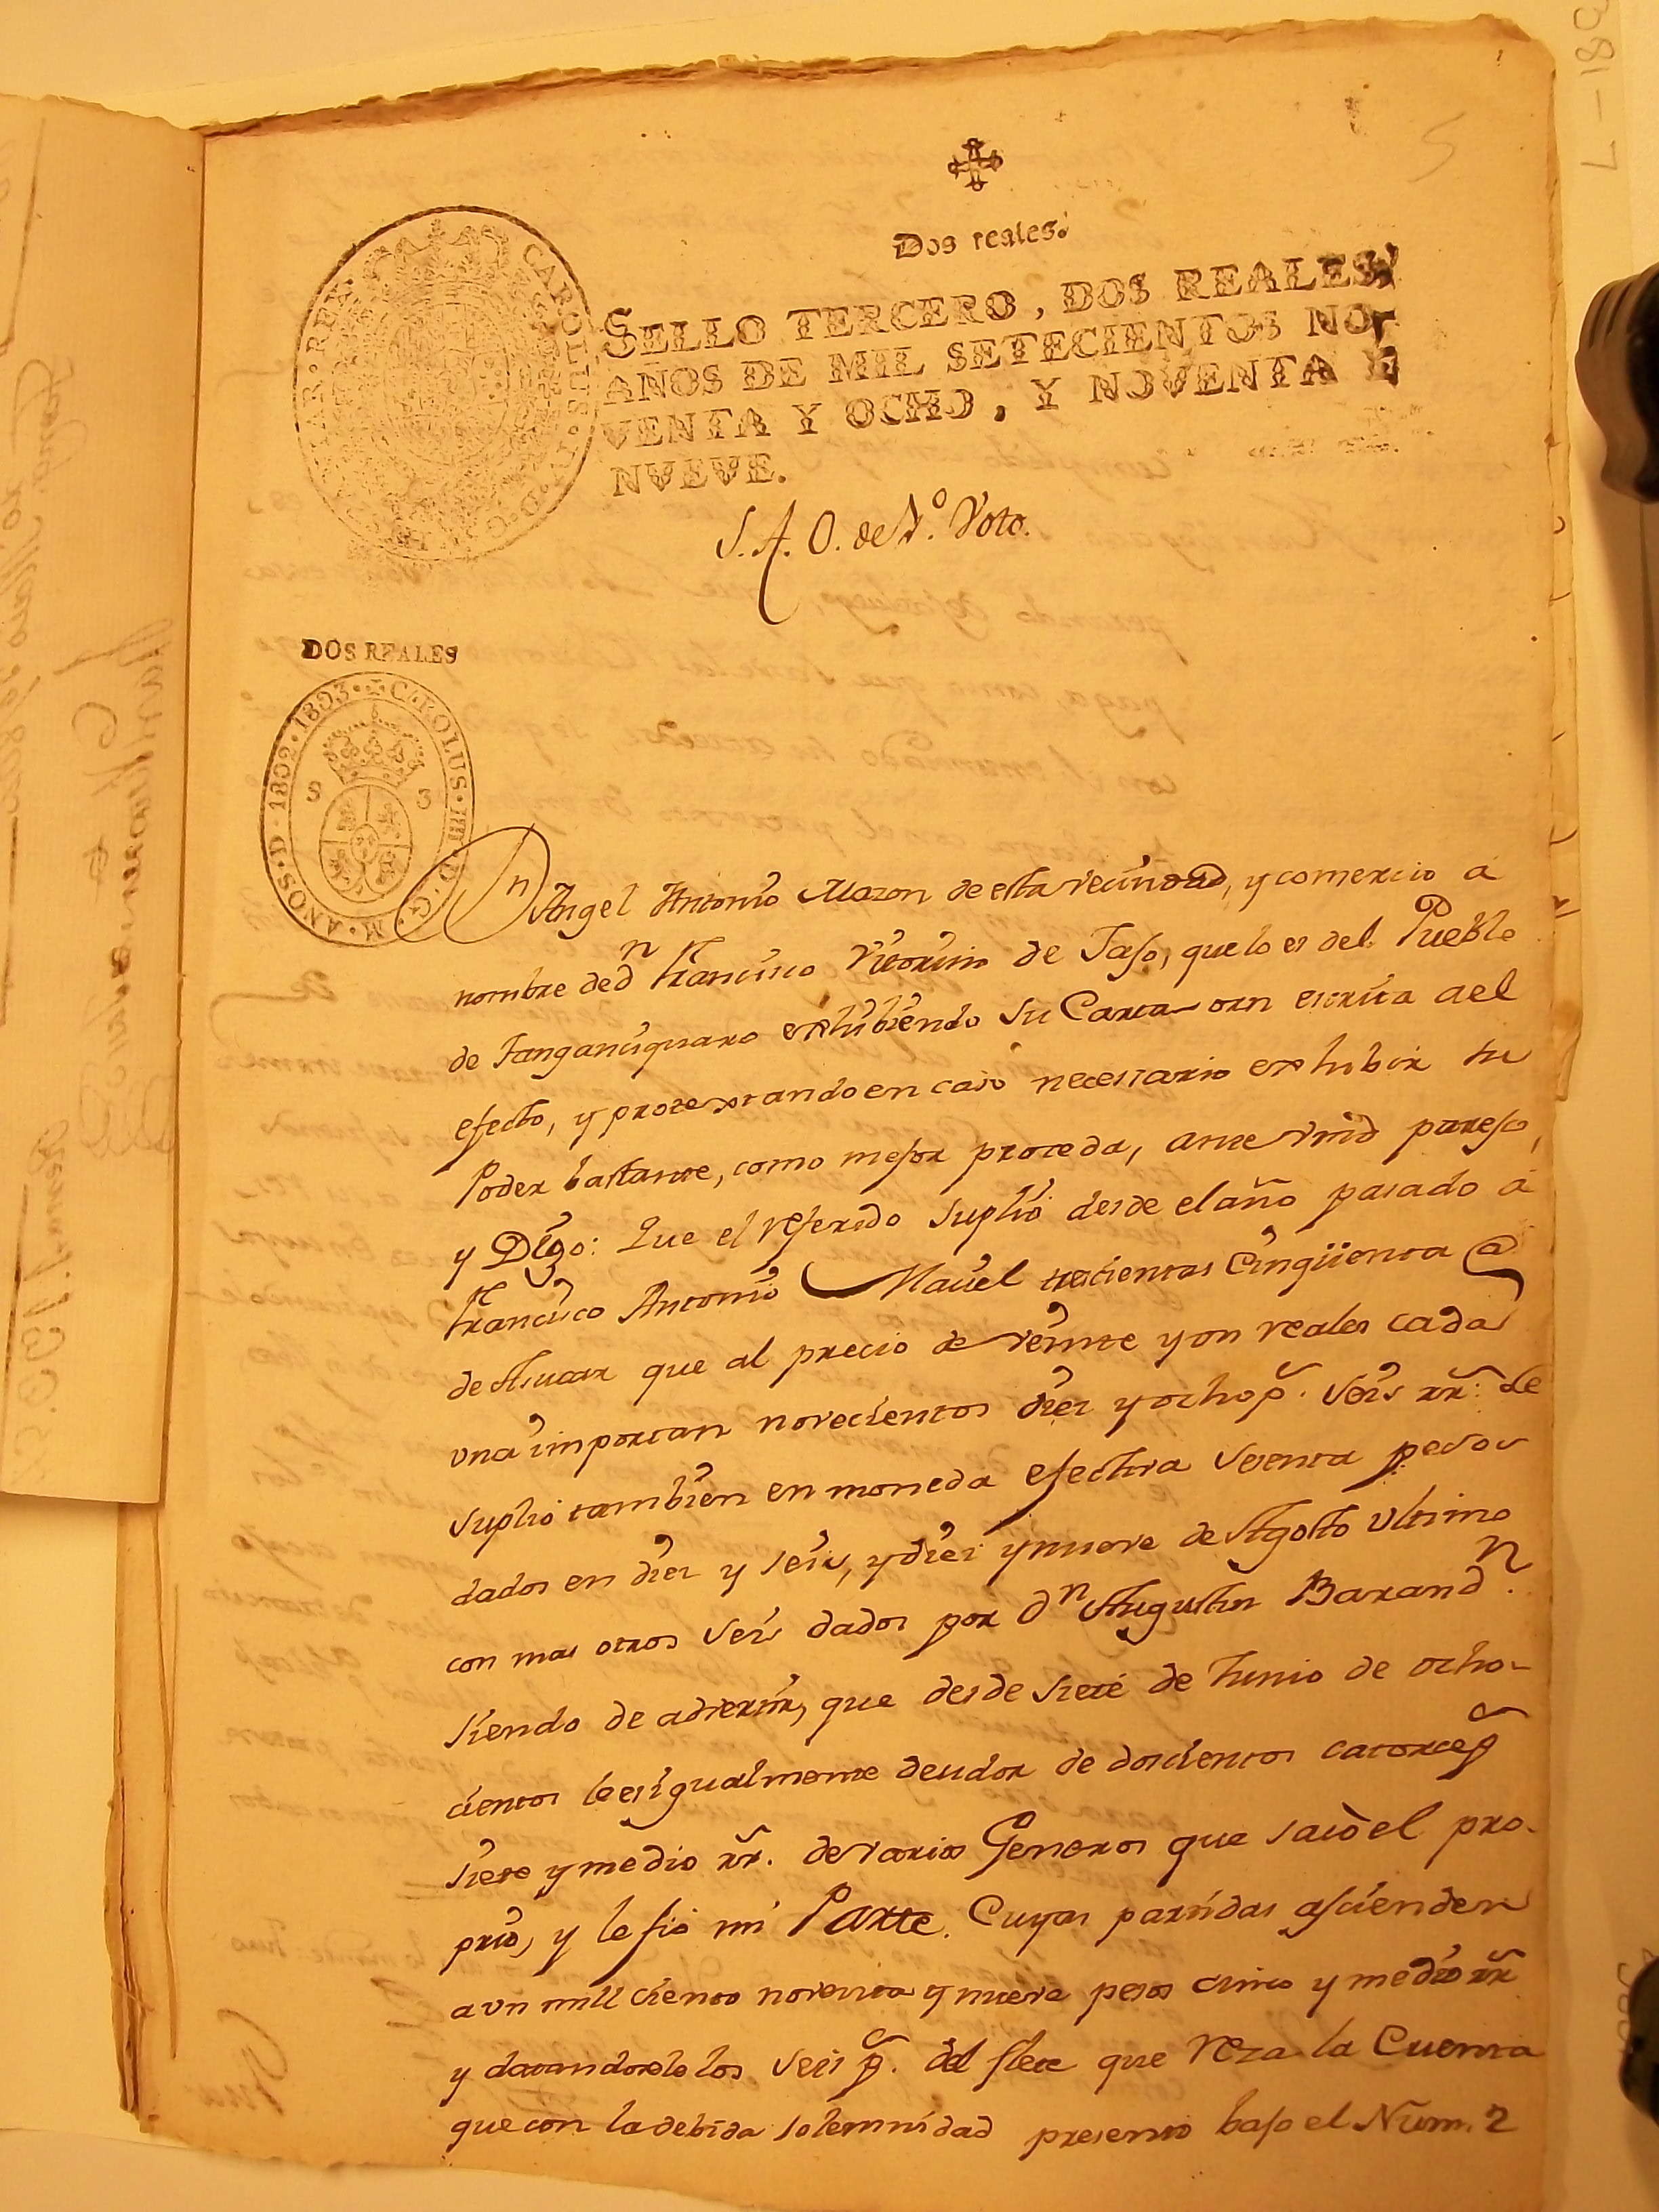 5
Dos reales.
SELLO TERCERO, DOS REALES,
AÑOS DE MIL SETECIENTOS NO-
VENTA Y OCHO, Y NOVENTA E
NVEVE.
CAROLUS·IV·D·G· IAR·REX·
S. A. O. de 1.º Voto.
DOS REALES
CAROLUS·IIII·D·G·M·ANOS·D·1802·1803·
S S
Dn Angel Antonio Mazon de esta vecindad, y comercio á
nombre de dn Francisco Victorino de Jaso, que lo es del Pueblo
de Tanganciquaro exhibiendo su Carta orn escrita a el
efecto, y protextando en caso necessario exhibir su
Poder bastante, como mejor proceda, ante Vmd paresco,
y Digo: Que el referido suplió desde el año pasado á
Francisco Antonio Mauel trecientas Cinqüenta @
de Asucar que al precio de veinte y un reales cada
una importan novecientos diez y ocho p. seis rr: le
suplio tambien en moneda efectiva setenta pesos
dados en diez y seis, y diez y nueve de Agosto ultimo
con mas otros seis dados por dn Augustin Barandn.
siendo de advertir, que desde siete de Junio de ocho-
cientos le es igualmente deudor de doscientos catorce p
siete y medio rr. de varios Generos que sacò el pro-
prio, y le fió mi Parte. Cuyas partidas ascienden
a un mill ciento noventa y nueve pesos cinco y medio rr
y datandosele los seis p. del flete que reza la Cuenta
que con la debida solemnidad presento bajo el Num. 2